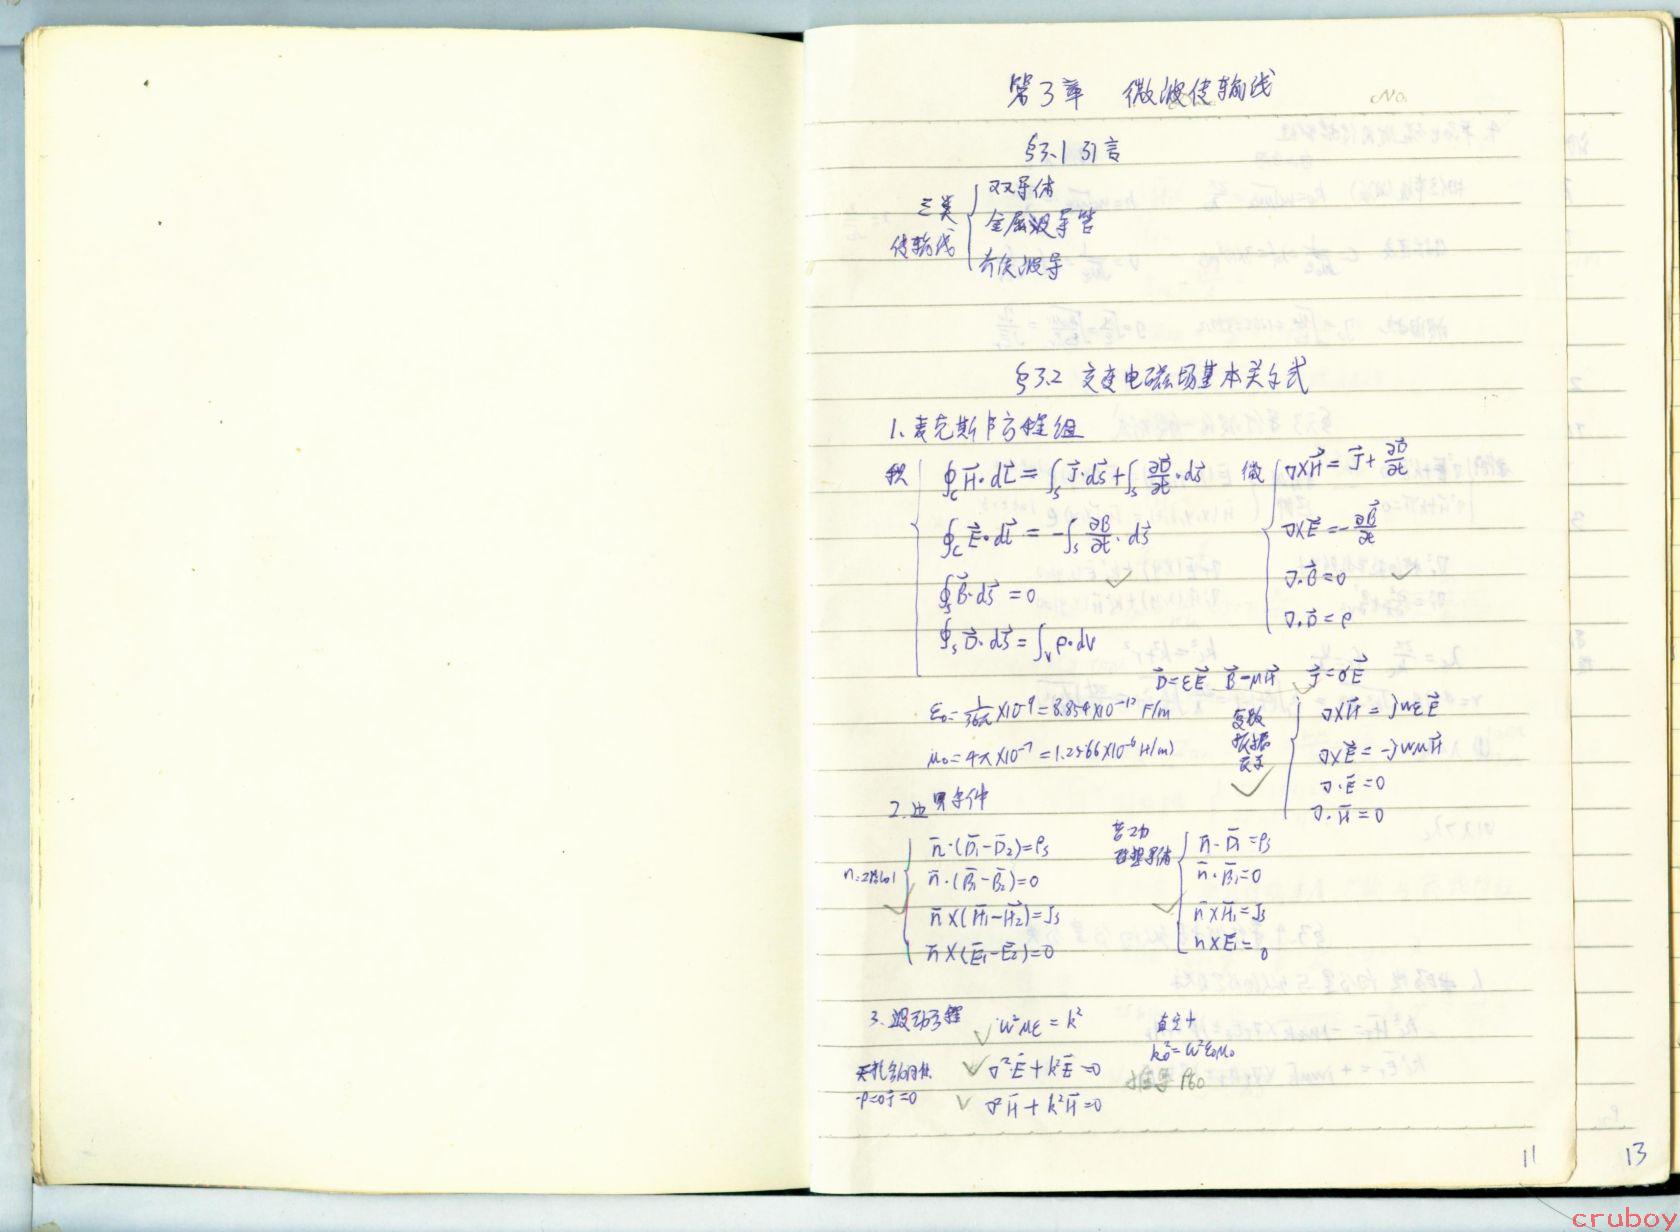 第3章 微波传输线
No.
§3.1 引言
三类传输线
双导体
金属波导管
介质波导
§3.2 交变电磁场基本关系式
1. 麦克斯韦方程组
积
∮c H⃗·dL⃗ = ∫s J⃗·ds⃗ + ∫s ∂D⃗/∂t·ds⃗
∮c E⃗·dL⃗ = -∫s ∂B⃗/∂t·ds⃗
∮s B⃗·ds⃗ = 0
∮s D⃗·ds⃗ = ∫v ρ·dv
微
∇×H⃗ = J⃗ + ∂D⃗/∂t
∇×E⃗ = -∂B⃗/∂t
∇·B⃗ = 0
∇·D⃗ = ρ
D⃗=εE⃗ B⃗=μH⃗ J⃗=σE⃗
ε₀ = 1/36π ×10⁻⁹ = 8.854×10⁻¹² F/m
μ₀ = 4π×10⁻⁷ = 1.2566×10⁻⁶ H/m)
复数
∇×H⃗ = jωεE⃗
∇×E⃗ = -jωμH⃗
∇·E̅ = 0
∇·H̅ = 0
2. 边界条件
n̅·(D̅₁-D̅₂)=ρs
n̅·(B̅₁-B̅₂)=0
n̅×(H̅₁-H̅₂)=Js
n̅×(E̅₁-E̅₂)=0
理想导体
n̅·D̅₁=ρs
n̅·B̅₁=0
n̅×H̅₁=Js
n×E̅₁=0
3. 波动方程
ω²με = k²
真空中
k₀²=ω²ε₀μ₀
ρ=0 J⃗=0
∇²E̅+k²E̅=0
∇²H̅+k²H̅=0
P60
11
13
cruboy